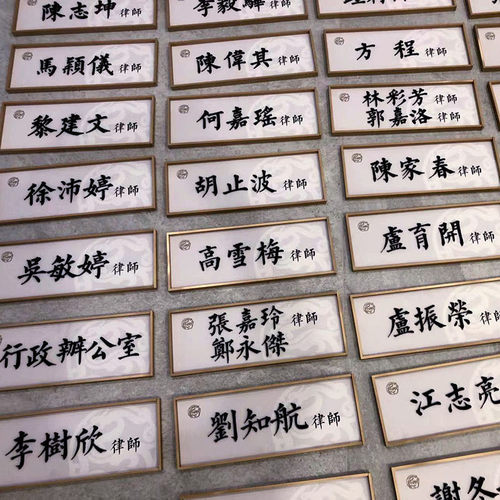 陳志坤 律師
李毅驊 律師
馬穎儀 律師
陳偉其 律師
方程 律師
黎建文 律師
何嘉瑤 律師
林彩芳 律師
郭嘉洛 律師
徐沛婷 律師
胡止波 律師
陳家春 律師
吳敏婷 律師
高雪梅 律師
盧育開 律師
行政辦公室
張嘉玲 律師
鄭永傑
盧振榮 律師
李樹欣 律師
劉知航 律師
江志亮
謝冬